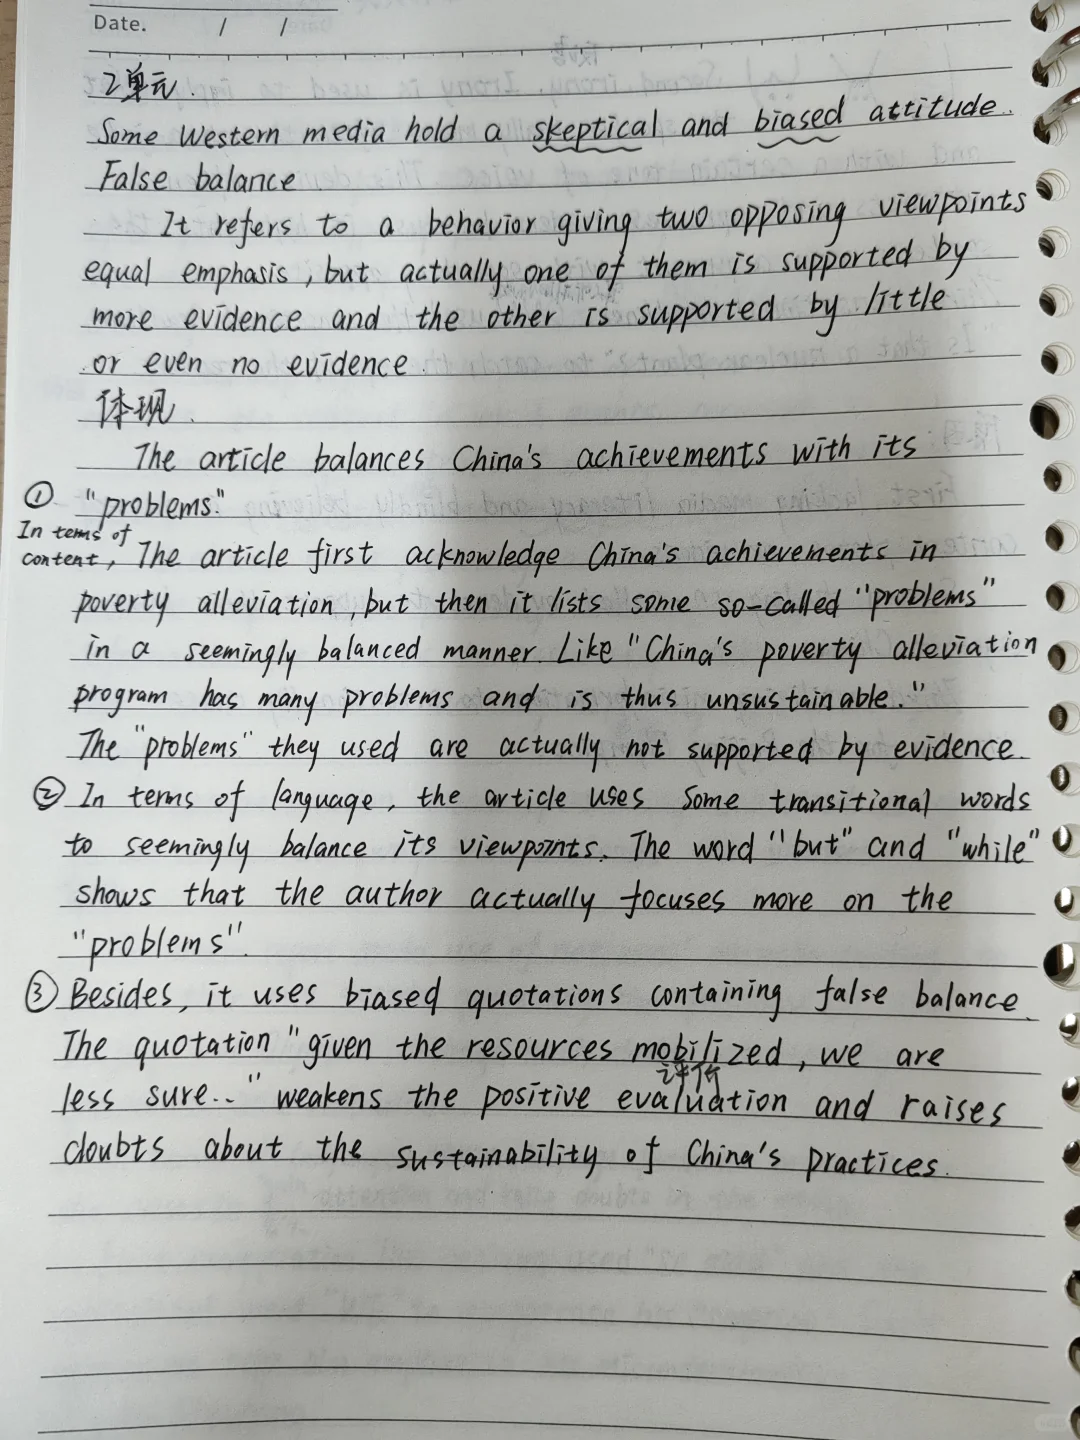 Date. / /
2单元.
Some Western media hold a skeptical and biased attitude.
False balance
It refers to a behavior giving two opposing viewpoints
equal emphasis, but actually one of them is supported by
more evidence and the other is supported by little
or even no evidence.
体现.
The article balances China's achievements with its
① "problems."
In tems of
content, The article first acknowledge China's achievements in
poverty alleviation, but then it lists some so-called "problems"
in a seemingly balanced manner. Like "China's poverty alleviation
program has many problems and is thus unsustainable."
The "problems" they used are actually not supported by evidence.
② In terms of language, the article uses some transitional words
to seemingly balance its viewpoints. The word "but" and "while"
shows that the author actually focuses more on the
"problems".
③ Besides, it uses biased quotations containing false balance.
The quotation "given the resources mobilized, we are
评价
less sure.." weakens the positive evaluation and raises
doubts about the sustainability of China's practices.